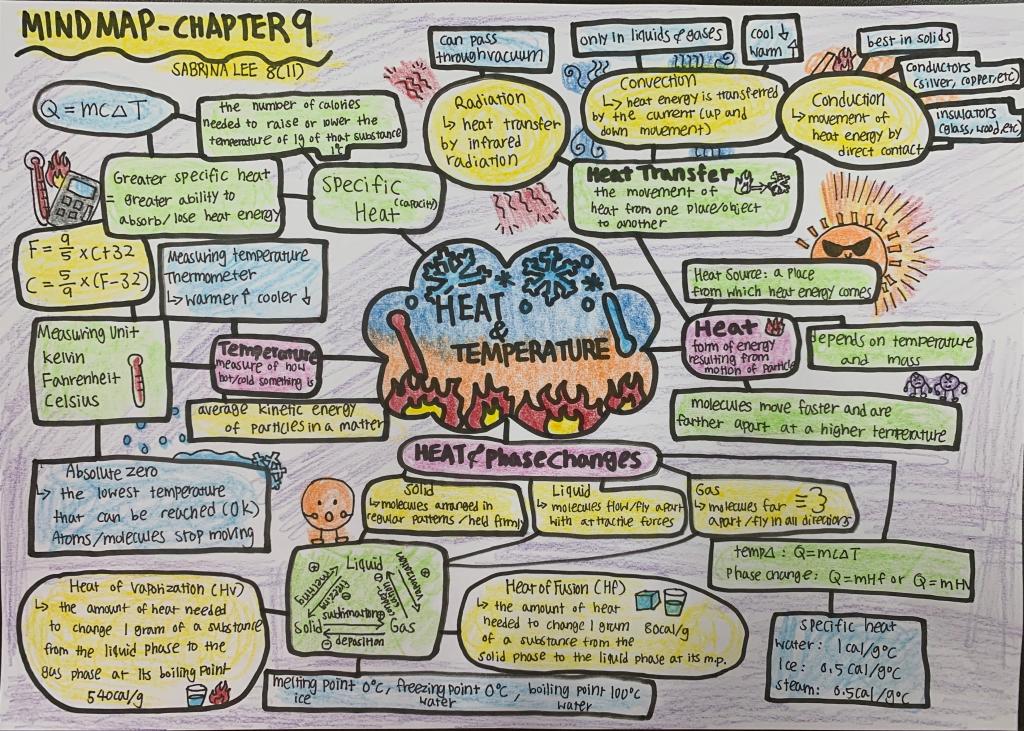 MIND MAP-CHAPTER 9
SABRINA LEE 8(11)
Q = mc∆T
the number of calories
needed to raise or lower the
temperature of 1g of that substance
1°c
Greater specific heat
= greater ability to
absorb/lose heat energy
Specific
(capacity)
Heat
F = 9/5 × C + 32
C = 5/9 × (F - 32)
Measuring temperature
Thermometer
↳ warmer ↑ cooler ↓
Measuring Unit
kelvin
Fahrenheit
Celsius
Temperature
measure of how
hot/cold something is
average kinetic energy
of particles in a matter
Absolute zero
↳ the lowest temperature
that can be reached (0k)
Atoms/molecules stop moving
can pass
through vacuum
Radiation
↳ heat transfer
by infrared
radiation
only in liquids & gases
cool ↓
warm ↑
Convection
↳ heat energy is transferred
by the current (up and
down movement)
best in solids
Conduction
↳ movement of
heat energy by
direct contact
conductors
(silver, copper, etc)
insulators
(glass, wood, etc)
Heat Transfer
the movement of
heat from one place/object
to another
HEAT
&
TEMPERATURE
Heat Source: a place
from which heat energy comes
Heat
form of energy
resulting from
motion of particle
depends on temperature
and mass
molecules move faster and are
farther apart at a higher temperature
HEAT & Phase Changes
Solid
↳ molecules arranged in
regular patterns/held firmly
Liquid
↳ molecules flow/fly apart
with attractive forces
Gas
↳ molecules far
apart/fly in all directions
temp∆: Q=mc∆T
Phase change: Q=mHf or Q=mHv
specific heat
water: 1cal/g°c
Ice: 0,5 cal/g°c
steam: 0.5cal/g°c
Liquid
melting
freezing
vaporization
sublimation
Solid
Gas
deposition
Heat of Vaporization (Hv)
↳ the amount of heat needed
to change 1 gram of a substance
from the liquid phase to the
gas phase at its boiling point
540cal/g
Heat of Fusion (Hf)
↳ the amount of heat
needed to change 1 gram
80cal/g
of a substance from the
solid phase to the liquid phase at its m.p.
melting point 0°c, freezing point 0°c, boiling point 100°c
ice water water